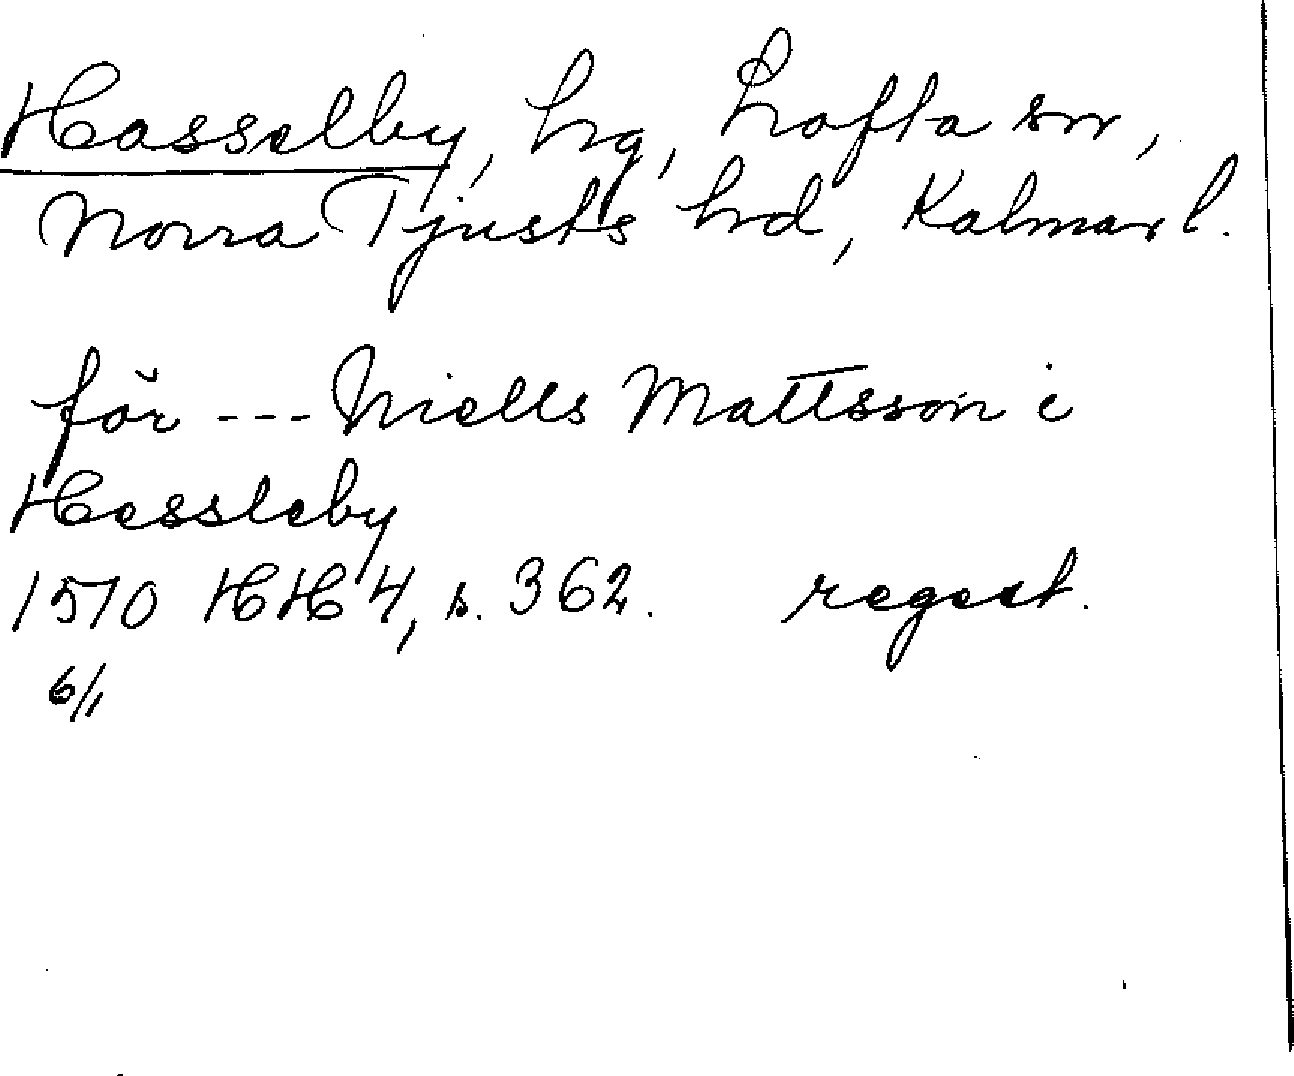 Hasselby, hg, Lofta sn,
Norra Tjusts hd, Kalmar l.
för --- Niells Mattsson i
Hessleby
1570 HH 4, s. 362. regest.
6/1